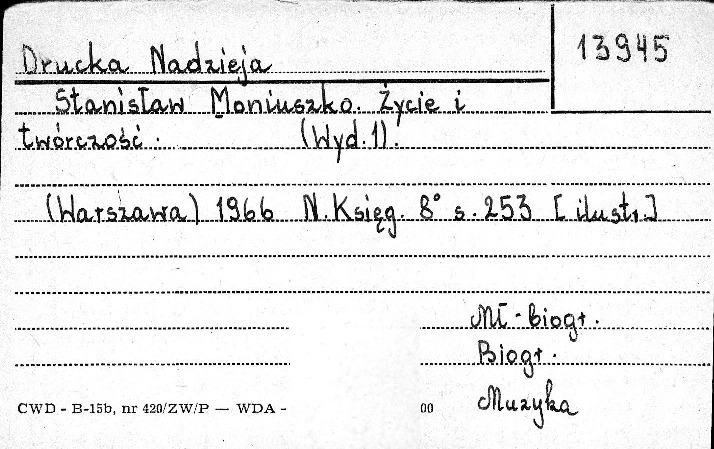 13945
Drucka Nadzieja
Stanisław Moniuszko. Życie i
twórczość. (Wyd.1).
(Warszawa) 1966 N.Księg. 8° s.253 [ilustr.]
Mł-biogr.
Biogr.
Muzyka
CWD - B-15b, nr 420/ZW/P — WDA - 00